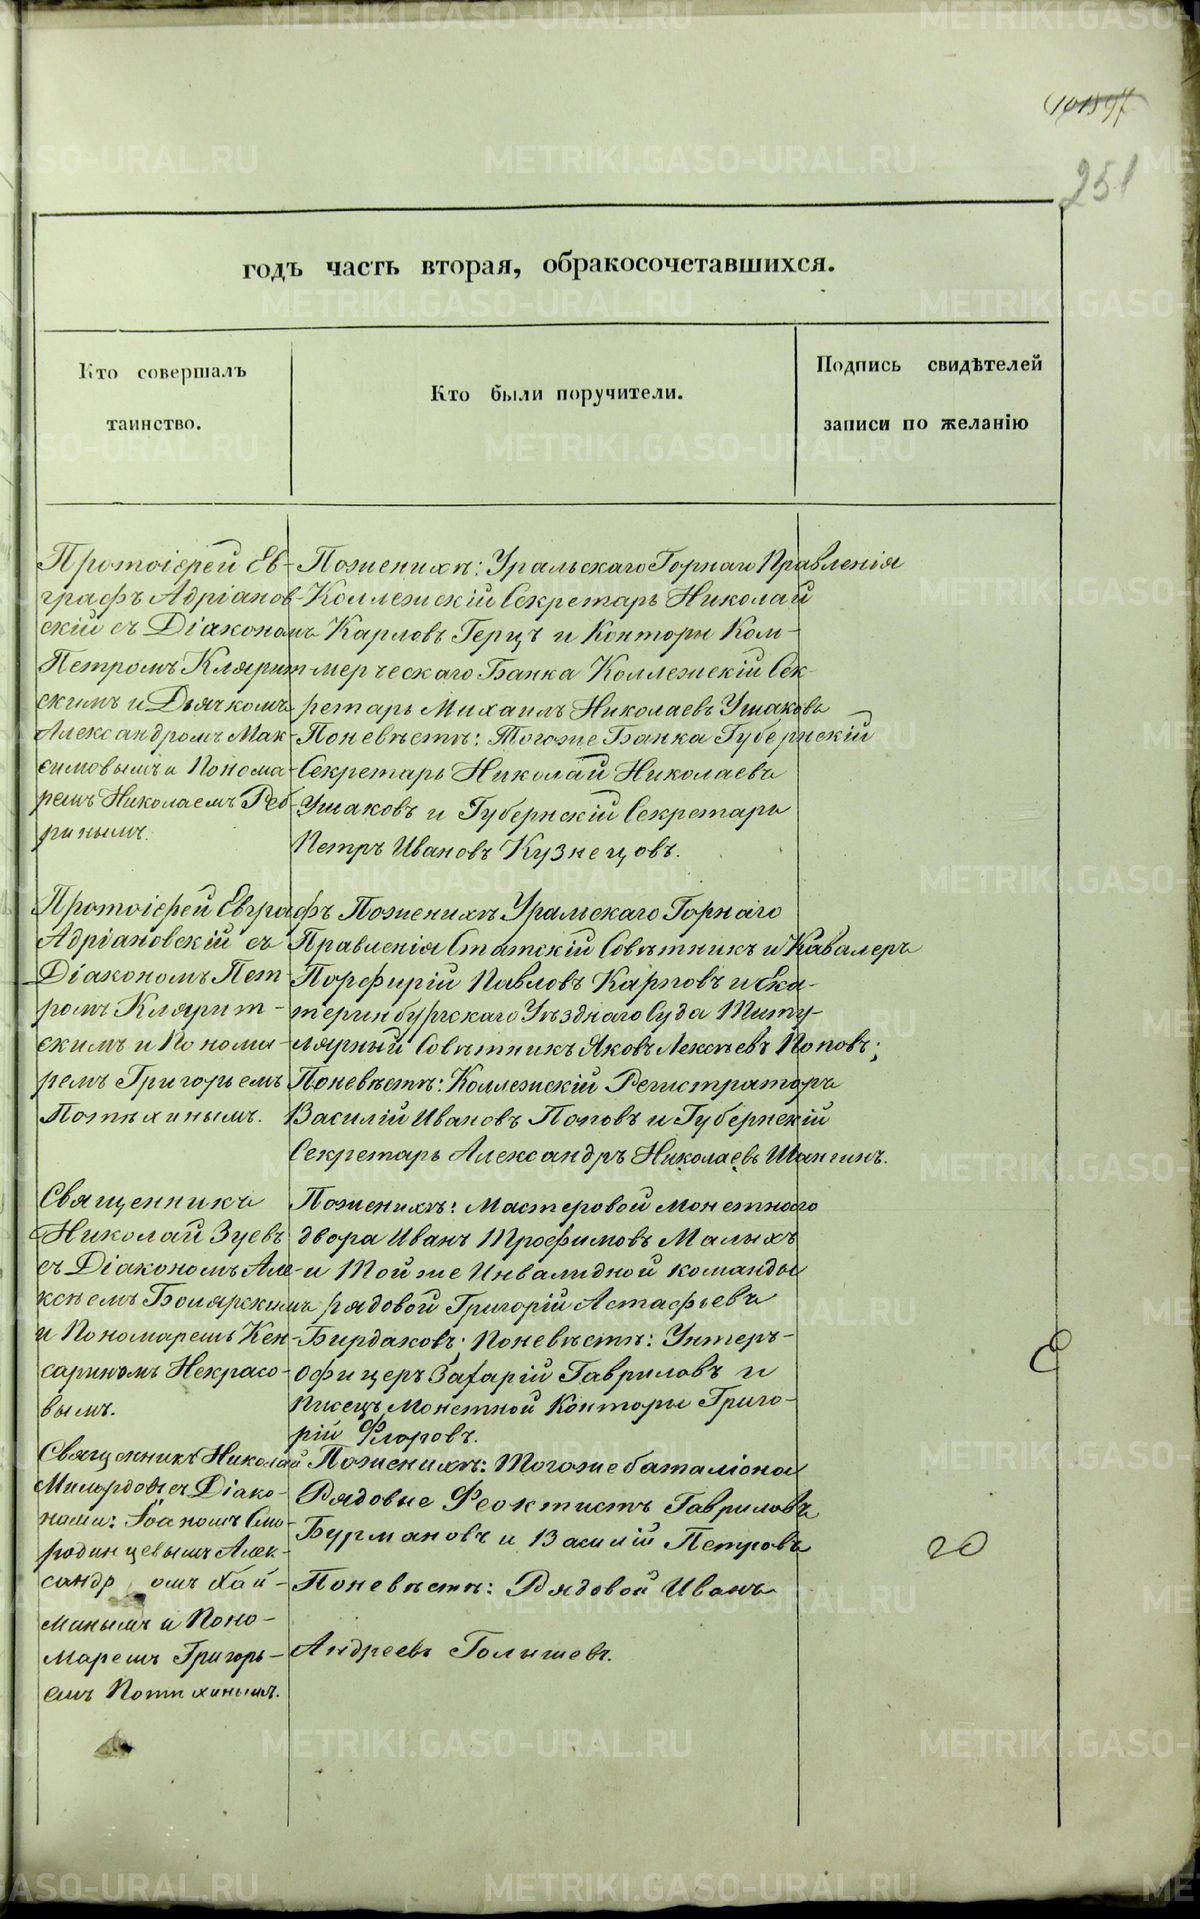 251
годъ часть вторая, обракосочетавшихся.
Кто совершалъ
таинство.
Кто были поручители.
Подпись свидѣтелей
записи по желанію
Протоіерей Ев-
графъ Адріанов-
скій съ Діакономъ
Петромъ Клярит-
скимъ и Дьячкомъ
Александромъ Мак-
симовымъ и Понома-
ремъ Николаемъ Реб-
ринымъ.
Поженихѣ: Уральскаго Горнаго Правленія
Коллежскій Секретарь Николай
Карловъ Герцъ и Конторы Ком-
мерческаго Банка Коллежскій Сек-
ретарь Михаилъ Николаевъ Ушаковъ
Поневѣстѣ: Тогоже Банка Губернскій
Секретарь Николай Николаевъ
Ушаковъ и Губернскій Секретарь
Петръ Ивановъ Кузнецовъ.
Протоіерей Евграфъ
Адріановскій съ
Діакономъ Пет
ромъ Клярит-
скимъ и Понома-
ремъ Григорьемъ
Потѣхинымъ.
Поженихѣ Уральскаго Горнаго
Правленія Статскій Совѣтникъ и Кавалеръ
Порфирій Павловъ Карповъ и Ека-
теринбургскаго Уѣзднаго Суда Титу-
лярный Совѣтникъ Яковъ Алексѣевъ Поповъ;
Поневѣстѣ: Коллежскій Регистраторъ
Василій Ивановъ Поповъ и Губернскій
Секретарь Александръ Николаевъ Шангинъ.
Священникъ
Николай Зуевъ
съ Діакономъ Але-
ксѣемъ Боярскимъ
и Пономаремъ Кен-
сариномъ Некрасо-
вымъ.
Поженихѣ: Мастеровой Монетнаго
двора Иванъ Трофимовъ Малыхъ
и Той же Инвалидной команды
рядовой Григорій Астафьевъ
Бирдаковъ; Поневѣстѣ: Унтеръ-
офицеръ Захарій Гавриловъ и
Писецъ Монетной Конторы Григо-
рій Флоровъ.
Священникъ Николай
Милордовъ съ Діако-
нами: Іоаномъ Смо-
родинцевымъ Алек-
сандромъ Хай-
минымъ и Поно-
маремъ Григорь-
емъ Потѣхинымъ.
Поженихѣ: Тогоже баталіона
Рядовые Феоктистъ Гавриловъ
Бурмановъ и Василій Петровъ
Поневѣстѣ: Рядовой Иванъ
Андреевъ Голышевъ.